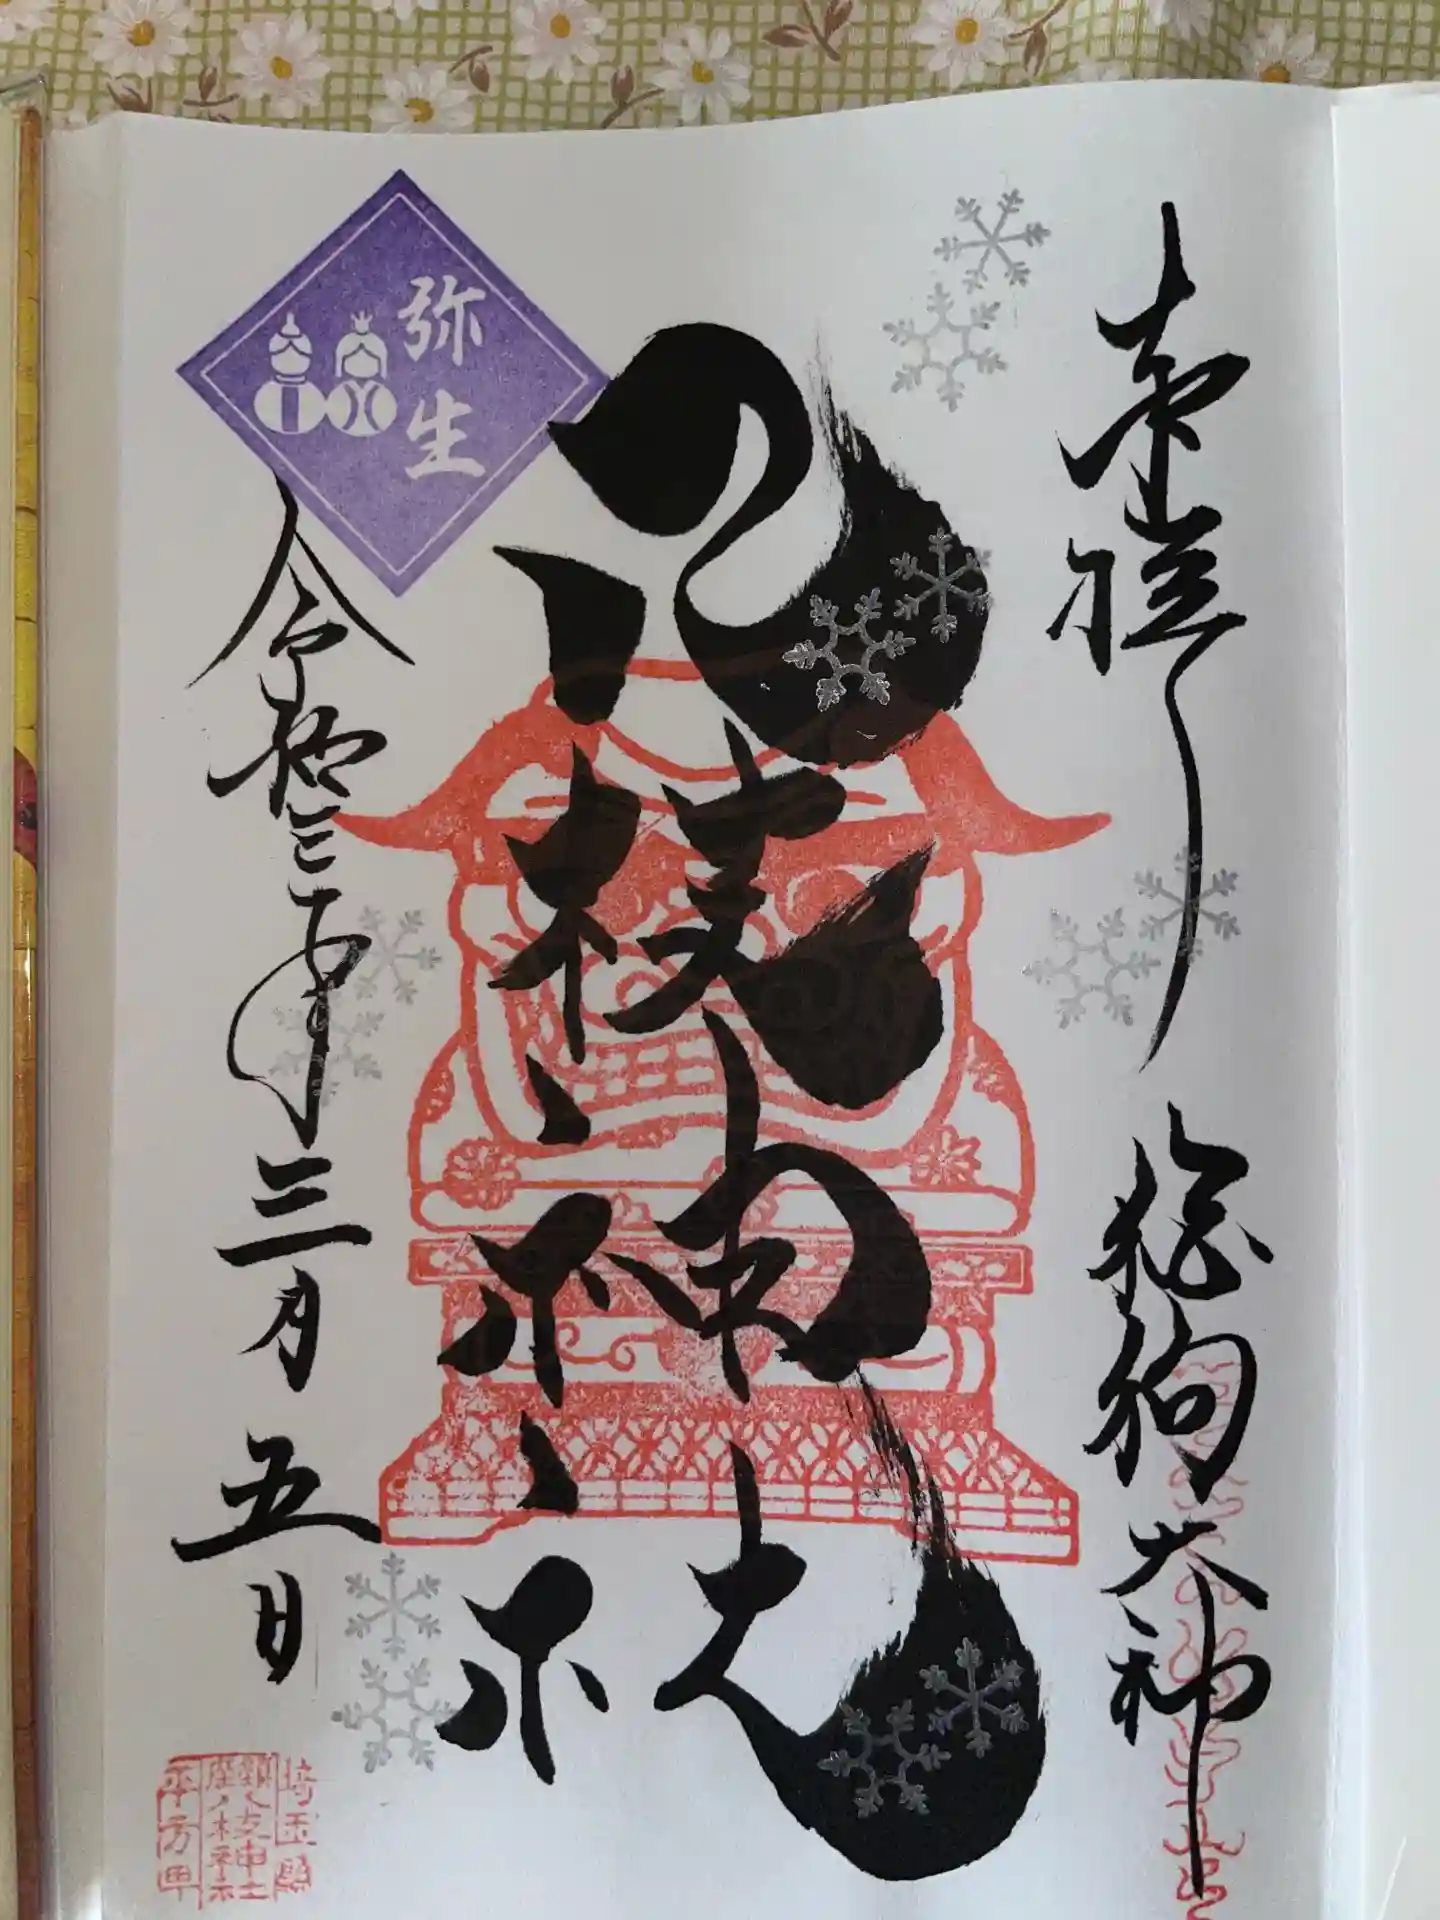 奉拝
狛狗大神
八枝神社
弥生
令和三年三月五日
埼玉縣
平方町